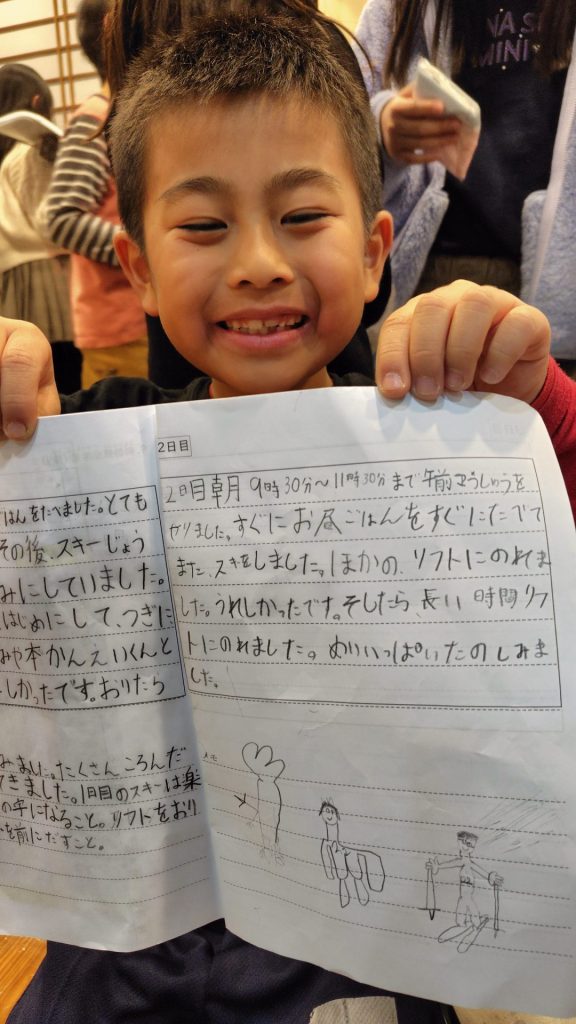 NA S
MINI
ごはんをたべました。とても
その後、スキーじょう
みにしていました。
はじめにして、つぎに
みや本かんえいくんと
しかったです。おりたら
みました。たくさんころんだ
できました。1日目のスキーは楽
の字になること。リフトをおり
を前にだすこと。
2日目
2日目朝 9時30分～11時30分まで午前こうしゅうを
やりました。すぐにお昼ごはんをすぐにたべて
また、スキをしました。ほかの、リフトにのれま
した。うれしかったです。そしたら、長い時間リフ
トにのれました。めいいっぱいたのしみま
した。
メモ